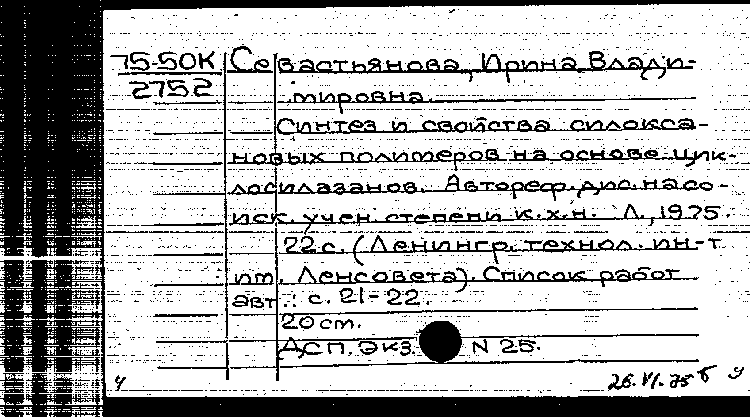 75-50К Севастьянова, Ирина Влади-
2752 мировна.
Синтез и свойства силокса-
новых полимеров на основе цик-
лосилазанов. Автореф. дис. на со-
иск. учен. степени к.х.н. Л., 1975.
22 с. (Ленингр. технол. ин-т
им. Ленсовета). Список работ
авт.: с. 21-22.
20 см.
ДСП. Экз. N 25.
26.VI.75